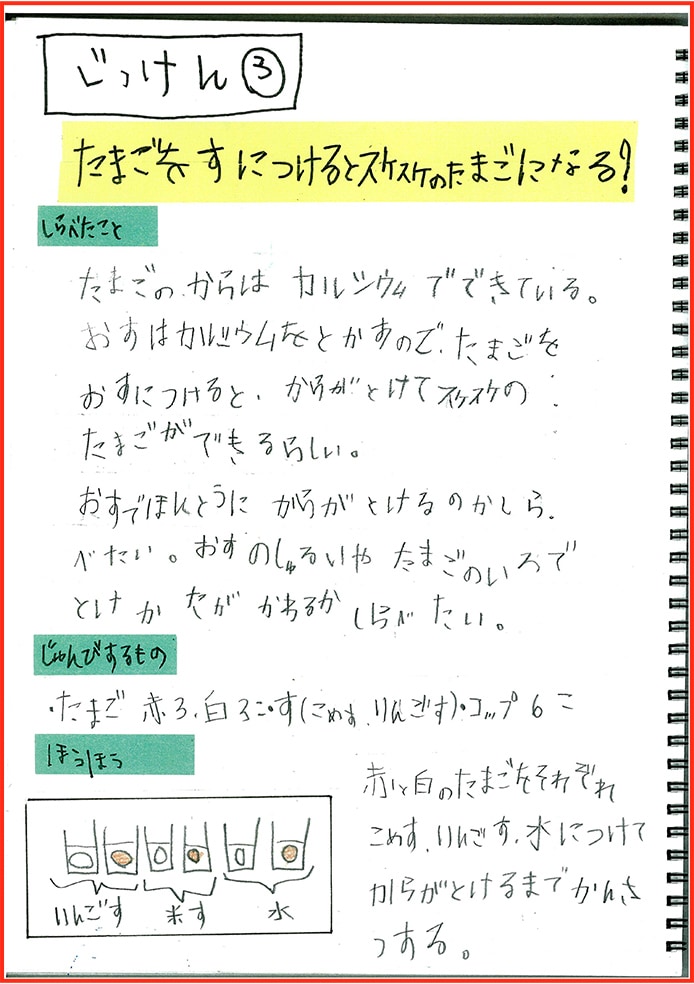 じっけん③
たまごをすにつけるとスケスケのたまごになる？
しらべたこと
たまごのからは カルシウムでできている。
おすはカルシウムをとかすので、たまごを
おすにつけると、からがとけてスケスケの
たまごができるらしい。
おすでほんとうに からがとけるのかしら
べたい。おすのしゅるいや たまごのいろで
とけかたが かわるか しらべたい。
じゅんびするもの
・たまご 赤3、白3こ・す(こめす、りんごす)・コップ6こ
ほうほう
赤いと白のたまごをそれぞれ
こめす、りんごす、水につけて
からがとけるまでかんさ
つする。
りんごす 米す 水